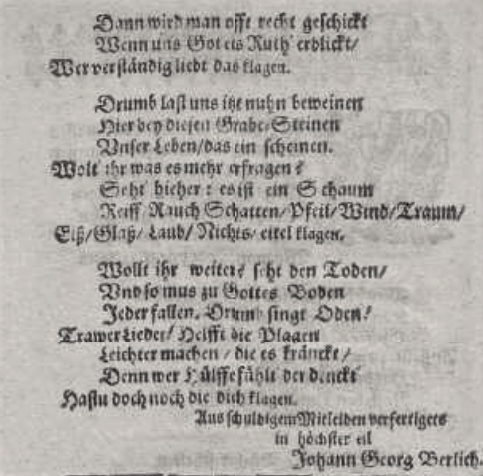 Dann wird man offt recht geschickt
Wenn uns Gottes Ruth' erblickt/
Wer verständig liebt das klagen.
Drumb last uns itzt nuhn beweinen
Hier bey diesen Grabe-Steinen
Vnser Leben/das ein scheinen.
Wolt' ihr was es mehr erfragen?
Seht hieher: es ist ein Schaum
Reiff/Rauch/Schatten/Pfeil/Wind/Traum/
Eiß/Glaß/Laub/Nichts/eitel klagen.
Wollt ihr weiter? seht den Toden/
Vnd so mus zu Gottes Boden
Jeder fallen. Drumb singt Oden!
Trawer Lieder! Helfft die Plagen
Leichter machen/die es kränckt/
Denn wer Hülffe fühlt der denckt
Hastu doch noch die dich klagen.
Aus schuldigem Mitleiden verfertigets
in höchster eil
Johann Georg Berlich.